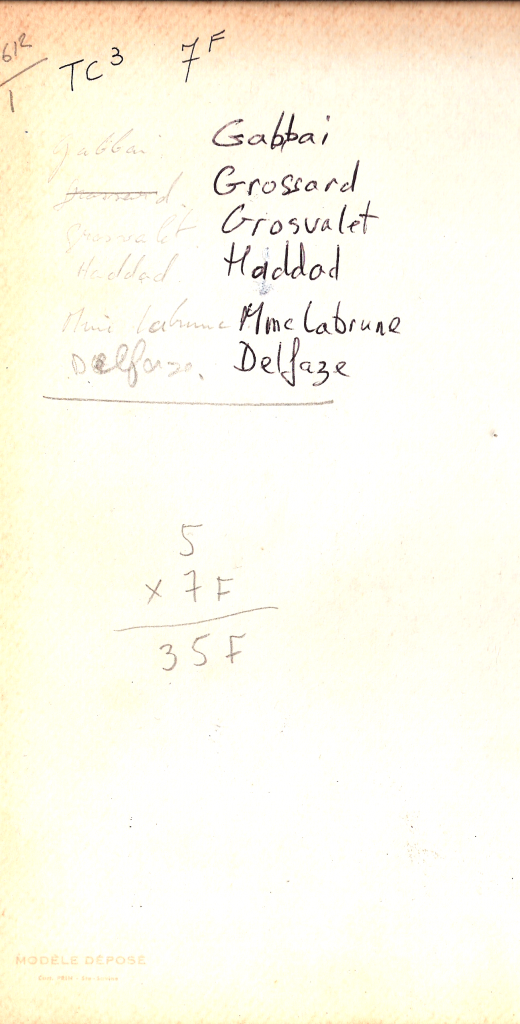 612
1
TC3 7F
Gabbai Gabbai
Grossard Grossard
Grosvalet Grosvalet
Haddad Haddad
Mme Labrune Mme Labrune
Delfaze. Delfaze
5
x 7F
35F
MODÈLE DÉPOSÉ